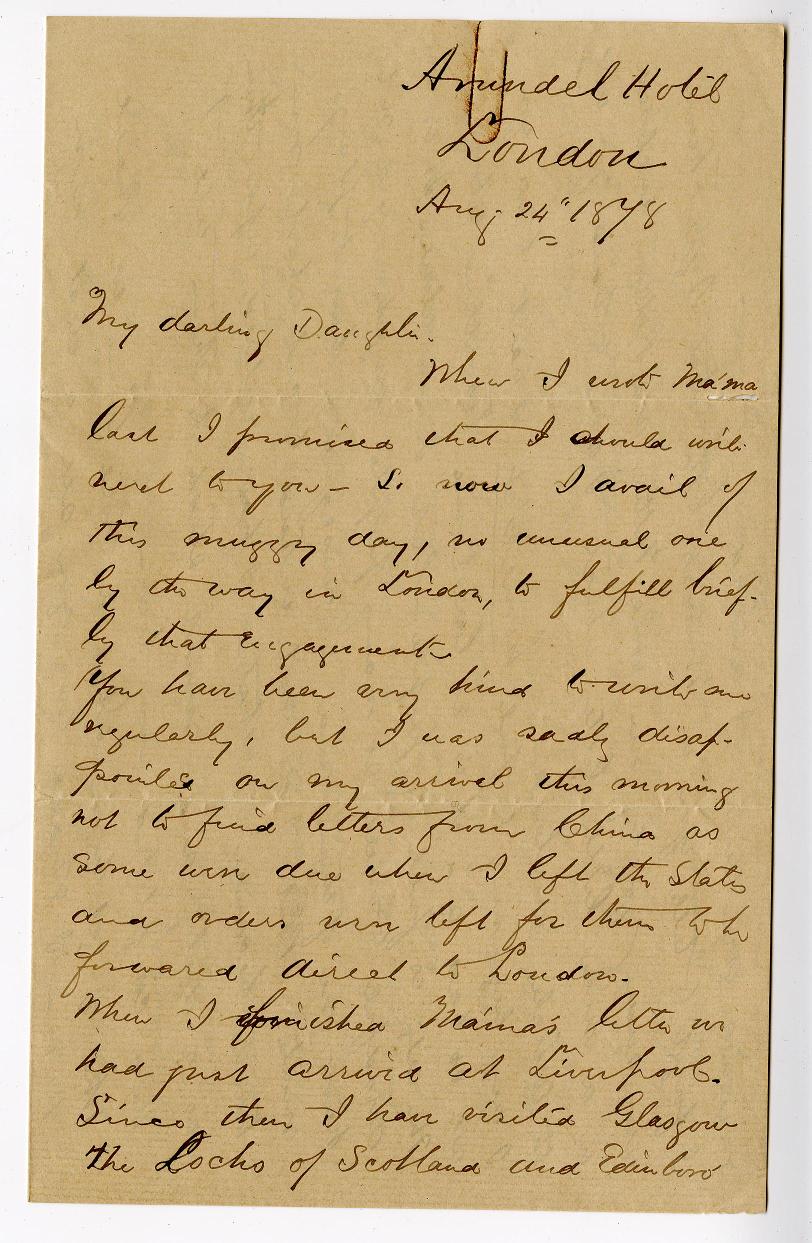 Arundel Hotel
London
Aug. 24" 1878
My darling Daughter.
When I wrote Mama
last I promised that I should write
next to you - So now I avail of
this muggy day, no unusual one
by the way in London, to fulfill brief-
ly that engagement.
You have been very kind to write me
regularly, but I was sadly disap-
pointed on my arrival this morning
not to find letters from China as
some were due when I left the States
and orders were left for them to be
forwarded direct to London.
When I finished Mama's letter we
had just arrived at Liverpool.
Since then I have visited Glasgow
the Lochs of Scotland and Edinboro'